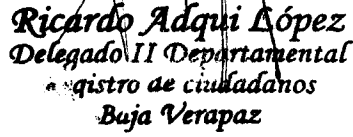 Ricardo Adqui López
Delegado II Departamental
gistro de ciudadanos
Baja Verapaz